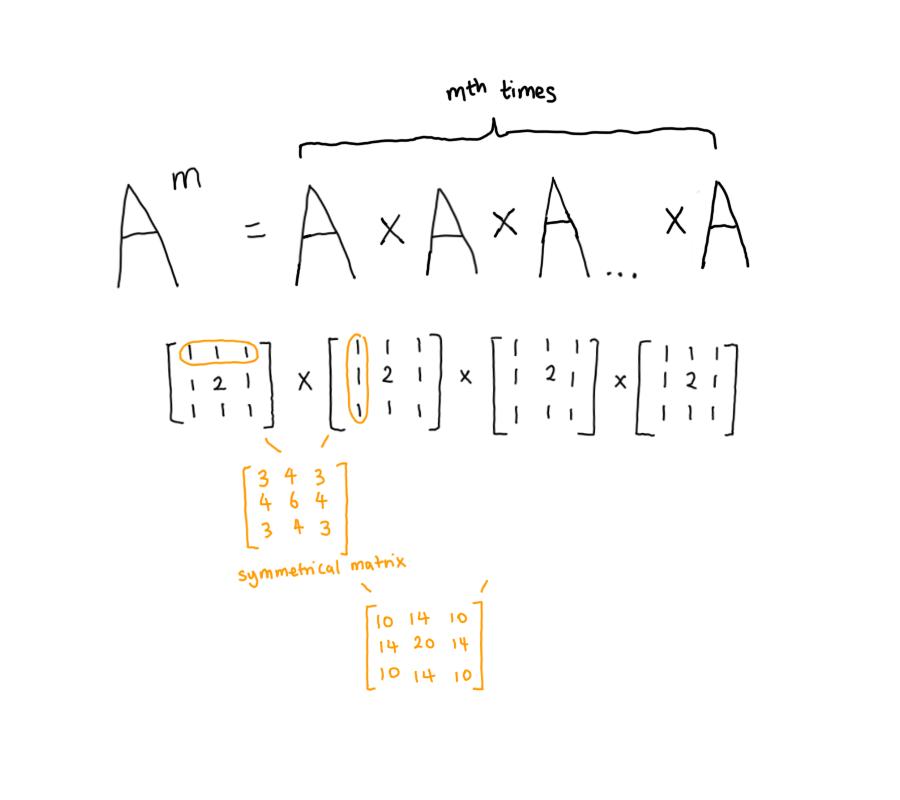 mth times
A^m = A × A × A ... × A
[1 1 1] × [1 1 1] × [1 1 1] × [1 1 1]
[1 2 1] [1 2 1] [1 2 1] [1 2 1]
[1 1 1] [1 1 1] [1 1 1] [1 1 1]
[3 4 3]
[4 6 4]
[3 4 3]
symmetrical matrix
[10 14 10]
[14 20 14]
[10 14 10]